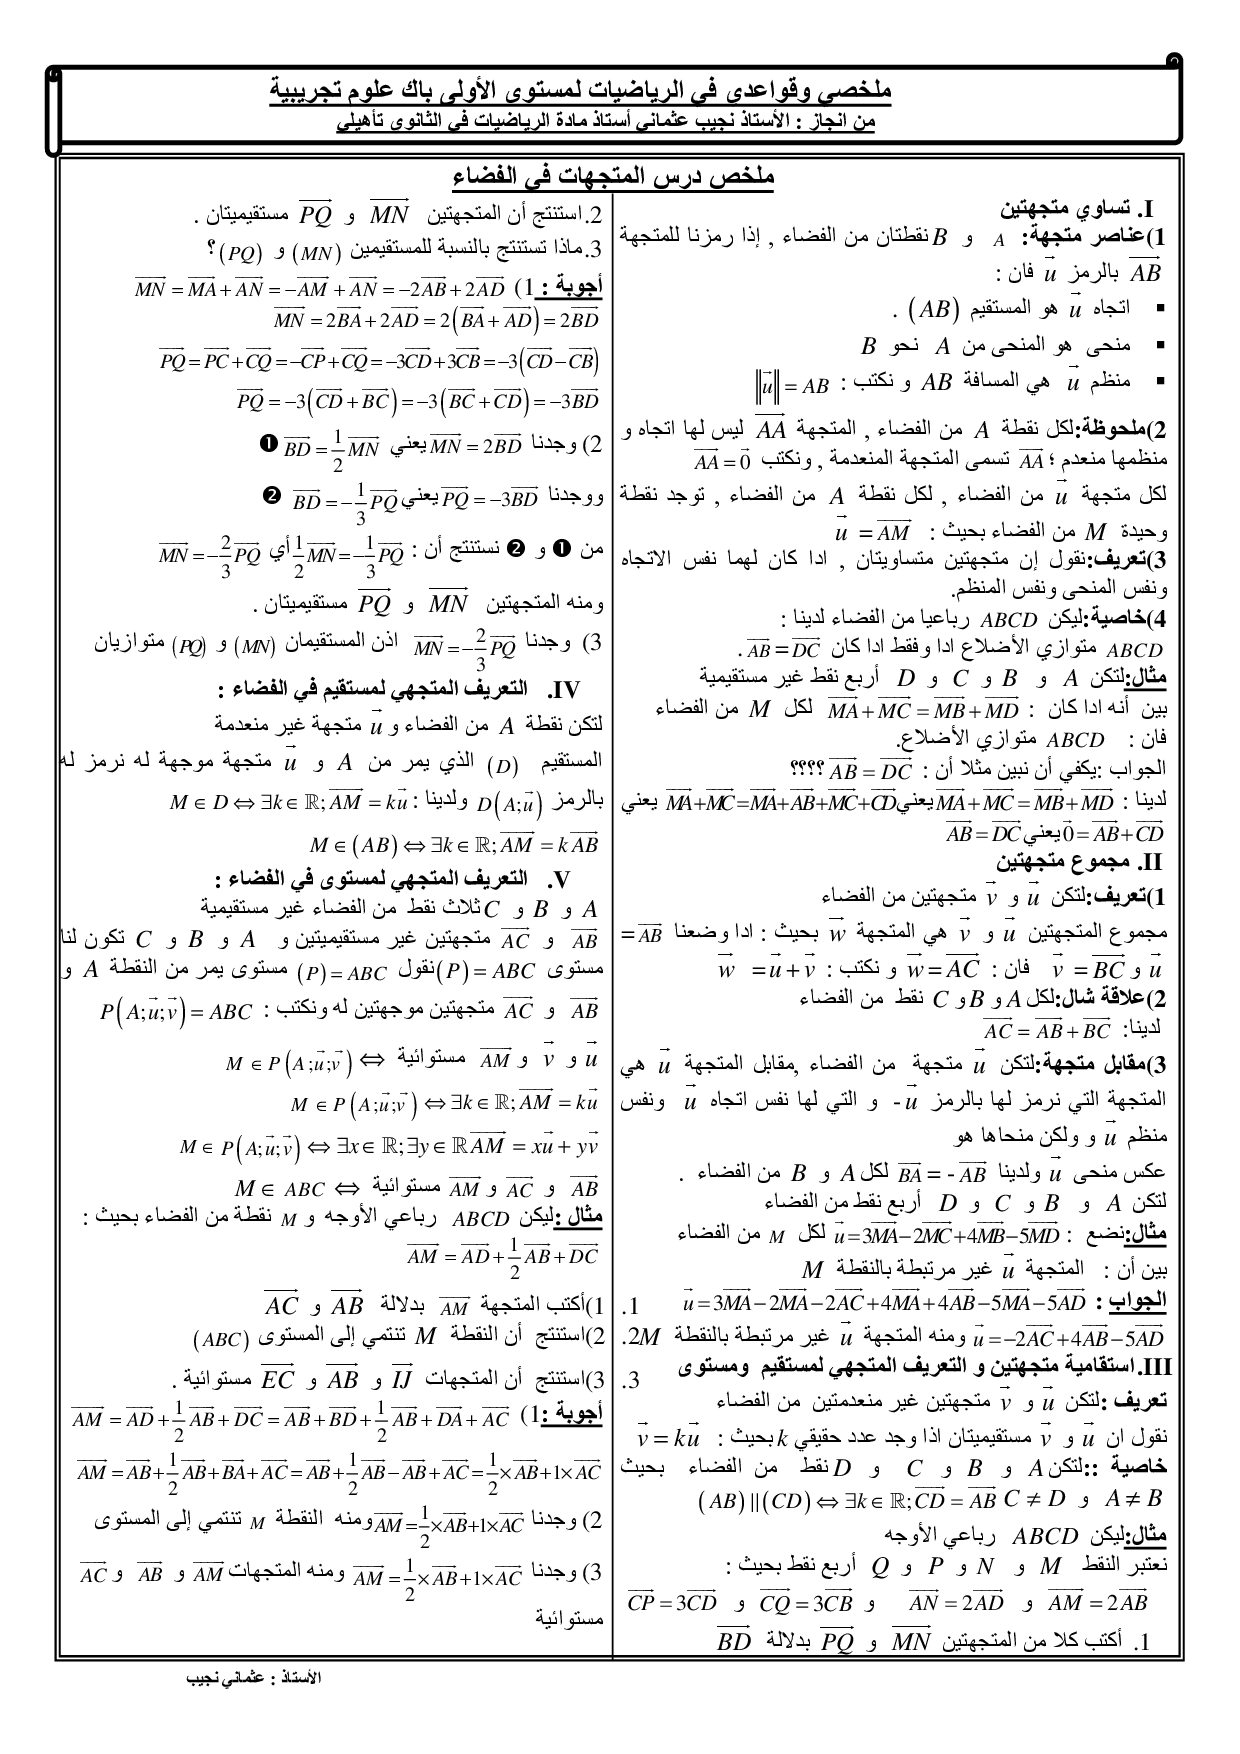 ملخصي وقواعدي في الرياضيات لمستوى الأولى باك علوم تجريبية
من انجاز : الأستاذ نجيب عثماني أستاذ مادة الرياضيات في الثانوي تأهيلي
ملخص درس المتجهات في الفضاء
I. تساوي متجهتين
1)عناصر متجهة: A و B نقطتان من الفضاء , إذا رمزنا للمتجهة
$\overrightarrow{AB}$ بالرمز $\vec{u}$ فان :
▪ اتجاه $\vec{u}$ هو المستقيم (AB) .
▪ منحى هو المنحى من A نحو B
▪ منظم $\vec{u}$ هي المسافة AB و نكتب : $\|\vec{u}\| = AB$
2)ملحوظة:لكل نقطة A من الفضاء , المتجهة $\overrightarrow{AA}$ ليس لها اتجاه و
منظمها منعدم ؛ $\overrightarrow{AA}$ تسمى المتجهة المنعدمة , ونكتب $\overrightarrow{AA} = \vec{0}$
لكل متجهة $\vec{u}$ من الفضاء , لكل نقطة A من الفضاء , توجد نقطة
وحيدة M من الفضاء بحيث : $\vec{u} = \overrightarrow{AM}$
3)تعريف:نقول إن متجهتين متساويتان , ادا كان لهما نفس الاتجاه
ونفس المنحى ونفس المنظم.
4)خاصية:ليكن ABCD رباعيا من الفضاء لدينا :
ABCD متوازي الأضلاع ادا وفقط ادا كان $\overrightarrow{AB} = \overrightarrow{DC}$ .
مثال:لتكن A و B و C و D أربع نقط غير مستقيمية
بين أنه ادا كان : $\overrightarrow{MA} + \overrightarrow{MC} = \overrightarrow{MB} + \overrightarrow{MD}$ لكل M من الفضاء
فان : ABCD متوازي الأضلاع.
الجواب :يكفي أن نبين مثلا أن : $\overrightarrow{AB} = \overrightarrow{DC}$ ؟؟؟؟
لدينا : $\overrightarrow{MA} + \overrightarrow{MC} = \overrightarrow{MB} + \overrightarrow{MD}$ يعني $\overrightarrow{MA}+\overrightarrow{MC}=\overrightarrow{MA}+\overrightarrow{AB}+\overrightarrow{MC}+\overrightarrow{CD}$ يعني
$\vec{0} = \overrightarrow{AB} + \overrightarrow{CD}$ يعني $\overrightarrow{AB} = \overrightarrow{DC}$
II. مجموع متجهتين
1)تعريف:لتكن $\vec{u}$ و $\vec{v}$ متجهتين من الفضاء
مجموع المتجهتين $\vec{u}$ و $\vec{v}$ هي المتجهة $\vec{w}$ بحيث : ادا وضعنا $\overrightarrow{AB}$ =
$\vec{u}$ و $\vec{v} = \overrightarrow{BC}$ فان : $\vec{w} = \overrightarrow{AC}$ و نكتب : $\vec{w} = \vec{u} + \vec{v}$
2)علاقة شال:لكل A و B و C نقط من الفضاء
لدينا: $\overrightarrow{AC} = \overrightarrow{AB} + \overrightarrow{BC}$
3)مقابل متجهة:لتكن $\vec{u}$ متجهة من الفضاء ,مقابل المتجهة $\vec{u}$ هي
المتجهة التي نرمز لها بالرمز $-\vec{u}$ و التي لها نفس اتجاه $\vec{u}$ ونفس
منظم $\vec{u}$ و ولكن منحاها هو
عكس منحى $\vec{u}$ ولدينا $\overrightarrow{BA} = -\overrightarrow{AB}$ لكل A و B من الفضاء .
لتكن A و B و C و D أربع نقط من الفضاء
مثال:نضع : $\vec{u} = 3\overrightarrow{MA} - 2\overrightarrow{MC} + 4\overrightarrow{MB} - 5\overrightarrow{MD}$ لكل M من الفضاء
بين أن : المتجهة $\vec{u}$ غير مرتبطة بالنقطة M
الجواب : $\vec{u} = 3\overrightarrow{MA} - 2\overrightarrow{MA} - 2\overrightarrow{AC} + 4\overrightarrow{MA} + 4\overrightarrow{AB} - 5\overrightarrow{MA} - 5\overrightarrow{AD}$
$\vec{u} = -2\overrightarrow{AC} + 4\overrightarrow{AB} - 5\overrightarrow{AD}$ ومنه المتجهة $\vec{u}$ غير مرتبطة بالنقطة M
III. استقامية متجهتين و التعريف المتجهي لمستقيم ومستوى
تعريف :لتكن $\vec{u}$ و $\vec{v}$ متجهتين غير منعدمتين من الفضاء
نقول ان $\vec{u}$ و $\vec{v}$ مستقيميتان اذا وجد عدد حقيقي k بحيث : $\vec{v} = k\vec{u}$
خاصية ::لتكن A و B و C و D نقط من الفضاء بحيث
A ≠ B و C ≠ D $(AB) || (CD) \Leftrightarrow \exists k \in \mathbb{R}; \overrightarrow{CD} = \overrightarrow{AB}$
مثال:ليكن ABCD رباعي الأوجه
نعتبر النقط M و N و P و Q أربع نقط بحيث :
$\overrightarrow{AM} = 2\overrightarrow{AB}$ و $\overrightarrow{AN} = 2\overrightarrow{AD}$ و $\overrightarrow{CQ} = 3\overrightarrow{CB}$ و $\overrightarrow{CP} = 3\overrightarrow{CD}$
1. أكتب كلا من المتجهتين $\overrightarrow{MN}$ و $\overrightarrow{PQ}$ بدلالة $\overrightarrow{BD}$
2. استنتج أن المتجهتين $\overrightarrow{MN}$ و $\overrightarrow{PQ}$ مستقيميتان .
3. ماذا تستنتج بالنسبة للمستقيمين (MN) و (PQ) ؟
أجوبة : 1) $\overrightarrow{MN} = \overrightarrow{MA} + \overrightarrow{AN} = -\overrightarrow{AM} + \overrightarrow{AN} = -2\overrightarrow{AB} + 2\overrightarrow{AD}$
$\overrightarrow{MN} = 2\overrightarrow{BA} + 2\overrightarrow{AD} = 2(\overrightarrow{BA} + \overrightarrow{AD}) = 2\overrightarrow{BD}$
$\overrightarrow{PQ} = \overrightarrow{PC} + \overrightarrow{CQ} = -\overrightarrow{CP} + \overrightarrow{CQ} = -3\overrightarrow{CD} + 3\overrightarrow{CB} = -3(\overrightarrow{CD} - \overrightarrow{CB})$
$\overrightarrow{PQ} = -3(\overrightarrow{CD} + \overrightarrow{BC}) = -3(\overrightarrow{BC} + \overrightarrow{CD}) = -3\overrightarrow{BD}$
2) وجدنا $\overrightarrow{MN} = 2\overrightarrow{BD}$ يعني $\overrightarrow{BD} = \frac{1}{2}\overrightarrow{MN}$ ❶
ووجدنا $\overrightarrow{PQ} = -3\overrightarrow{BD}$ يعني $\overrightarrow{BD} = -\frac{1}{3}\overrightarrow{PQ}$ ❷
من ❶ و ❷ نستنتج أن : $\frac{1}{2}\overrightarrow{MN} = -\frac{1}{3}\overrightarrow{PQ}$ أي $\overrightarrow{MN} = -\frac{2}{3}\overrightarrow{PQ}$
ومنه المتجهتين $\overrightarrow{MN}$ و $\overrightarrow{PQ}$ مستقيميتان .
3) وجدنا $\overrightarrow{MN} = -\frac{2}{3}\overrightarrow{PQ}$ اذن المستقيمان (MN) و (PQ) متوازيان
IV. التعريف المتجهي لمستقيم في الفضاء :
لتكن نقطة A من الفضاء و $\vec{u}$ متجهة غير منعدمة
المستقيم (D) الذي يمر من A و $\vec{u}$ متجهة موجهة له نرمز له
بالرمز $D(A;\vec{u})$ ولدينا : $M \in D \Leftrightarrow \exists k \in \mathbb{R}; \overrightarrow{AM} = k\vec{u}$
$M \in (AB) \Leftrightarrow \exists k \in \mathbb{R}; \overrightarrow{AM} = k\overrightarrow{AB}$
V. التعريف المتجهي لمستوى في الفضاء :
A و B و C ثلاث نقط من الفضاء غير مستقيمية
$\overrightarrow{AB}$ و $\overrightarrow{AC}$ متجهتين غير مستقيميتين و A و B و C تكون لنا
مستوى (P) = ABC نقول (P) = ABC مستوى يمر من النقطة A و
$\overrightarrow{AB}$ و $\overrightarrow{AC}$ متجهتين موجهتين له ونكتب : $P(A;\vec{u};\vec{v}) = ABC$
$\vec{u}$ و $\vec{v}$ و $\overrightarrow{AM}$ مستوائية ⇔ $M \in P(A;\vec{u};\vec{v})$
$M \in P(A;\vec{u};\vec{v}) \Leftrightarrow \exists k \in \mathbb{R}; \overrightarrow{AM} = k\vec{u}$
$M \in P(A;\vec{u};\vec{v}) \Leftrightarrow \exists x \in \mathbb{R}; \exists y \in \mathbb{R} \overrightarrow{AM} = x\vec{u} + y\vec{v}$
$\overrightarrow{AB}$ و $\overrightarrow{AC}$ و $\overrightarrow{AM}$ مستوائية ⇔ M ∈ ABC
مثال :ليكن ABCD رباعي الأوجه و M نقطة من الفضاء بحيث :
$\overrightarrow{AM} = \overrightarrow{AD} + \frac{1}{2}\overrightarrow{AB} + \overrightarrow{DC}$
1. 1)أكتب المتجهة $\overrightarrow{AM}$ بدلالة $\overrightarrow{AB}$ و $\overrightarrow{AC}$
2. 2)استنتج أن النقطة M تنتمي إلى المستوى (ABC)
3. 3)استنتج أن المتجهات $\overrightarrow{IJ}$ و $\overrightarrow{AB}$ و $\overrightarrow{EC}$ مستوائية .
أجوبة :1) $\overrightarrow{AM} = \overrightarrow{AD} + \frac{1}{2}\overrightarrow{AB} + \overrightarrow{DC} = \overrightarrow{AB} + \overrightarrow{BD} + \frac{1}{2}\overrightarrow{AB} + \overrightarrow{DA} + \overrightarrow{AC}$
$\overrightarrow{AM} = \overrightarrow{AB} + \frac{1}{2}\overrightarrow{AB} + \overrightarrow{BA} + \overrightarrow{AC} = \overrightarrow{AB} + \frac{1}{2}\overrightarrow{AB} - \overrightarrow{AB} + \overrightarrow{AC} = \frac{1}{2} \times \overrightarrow{AB} + 1 \times \overrightarrow{AC}$
2) وجدنا $\overrightarrow{AM} = \frac{1}{2} \times \overrightarrow{AB} + 1 \times \overrightarrow{AC}$ ومنه النقطة M تنتمي إلى المستوى
3) وجدنا $\overrightarrow{AM} = \frac{1}{2} \times \overrightarrow{AB} + 1 \times \overrightarrow{AC}$ ومنه المتجهات $\overrightarrow{AM}$ و $\overrightarrow{AB}$ و $\overrightarrow{AC}$
مستوائية
الأستاذ : عثماني نجيب